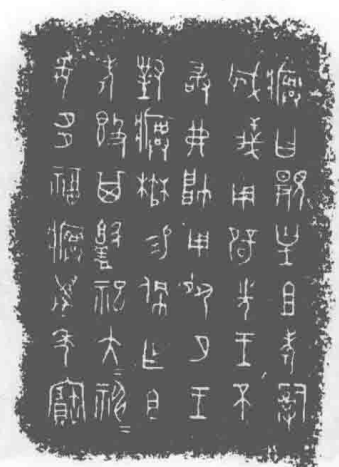 𤼈曰覭皇且考𤔲
威義用辟先王不
敢弗帥用夙夕王
對𤼈楙易佩乍且
考簋其𦎫祀大=神=
妥多福𤼈萬年寶